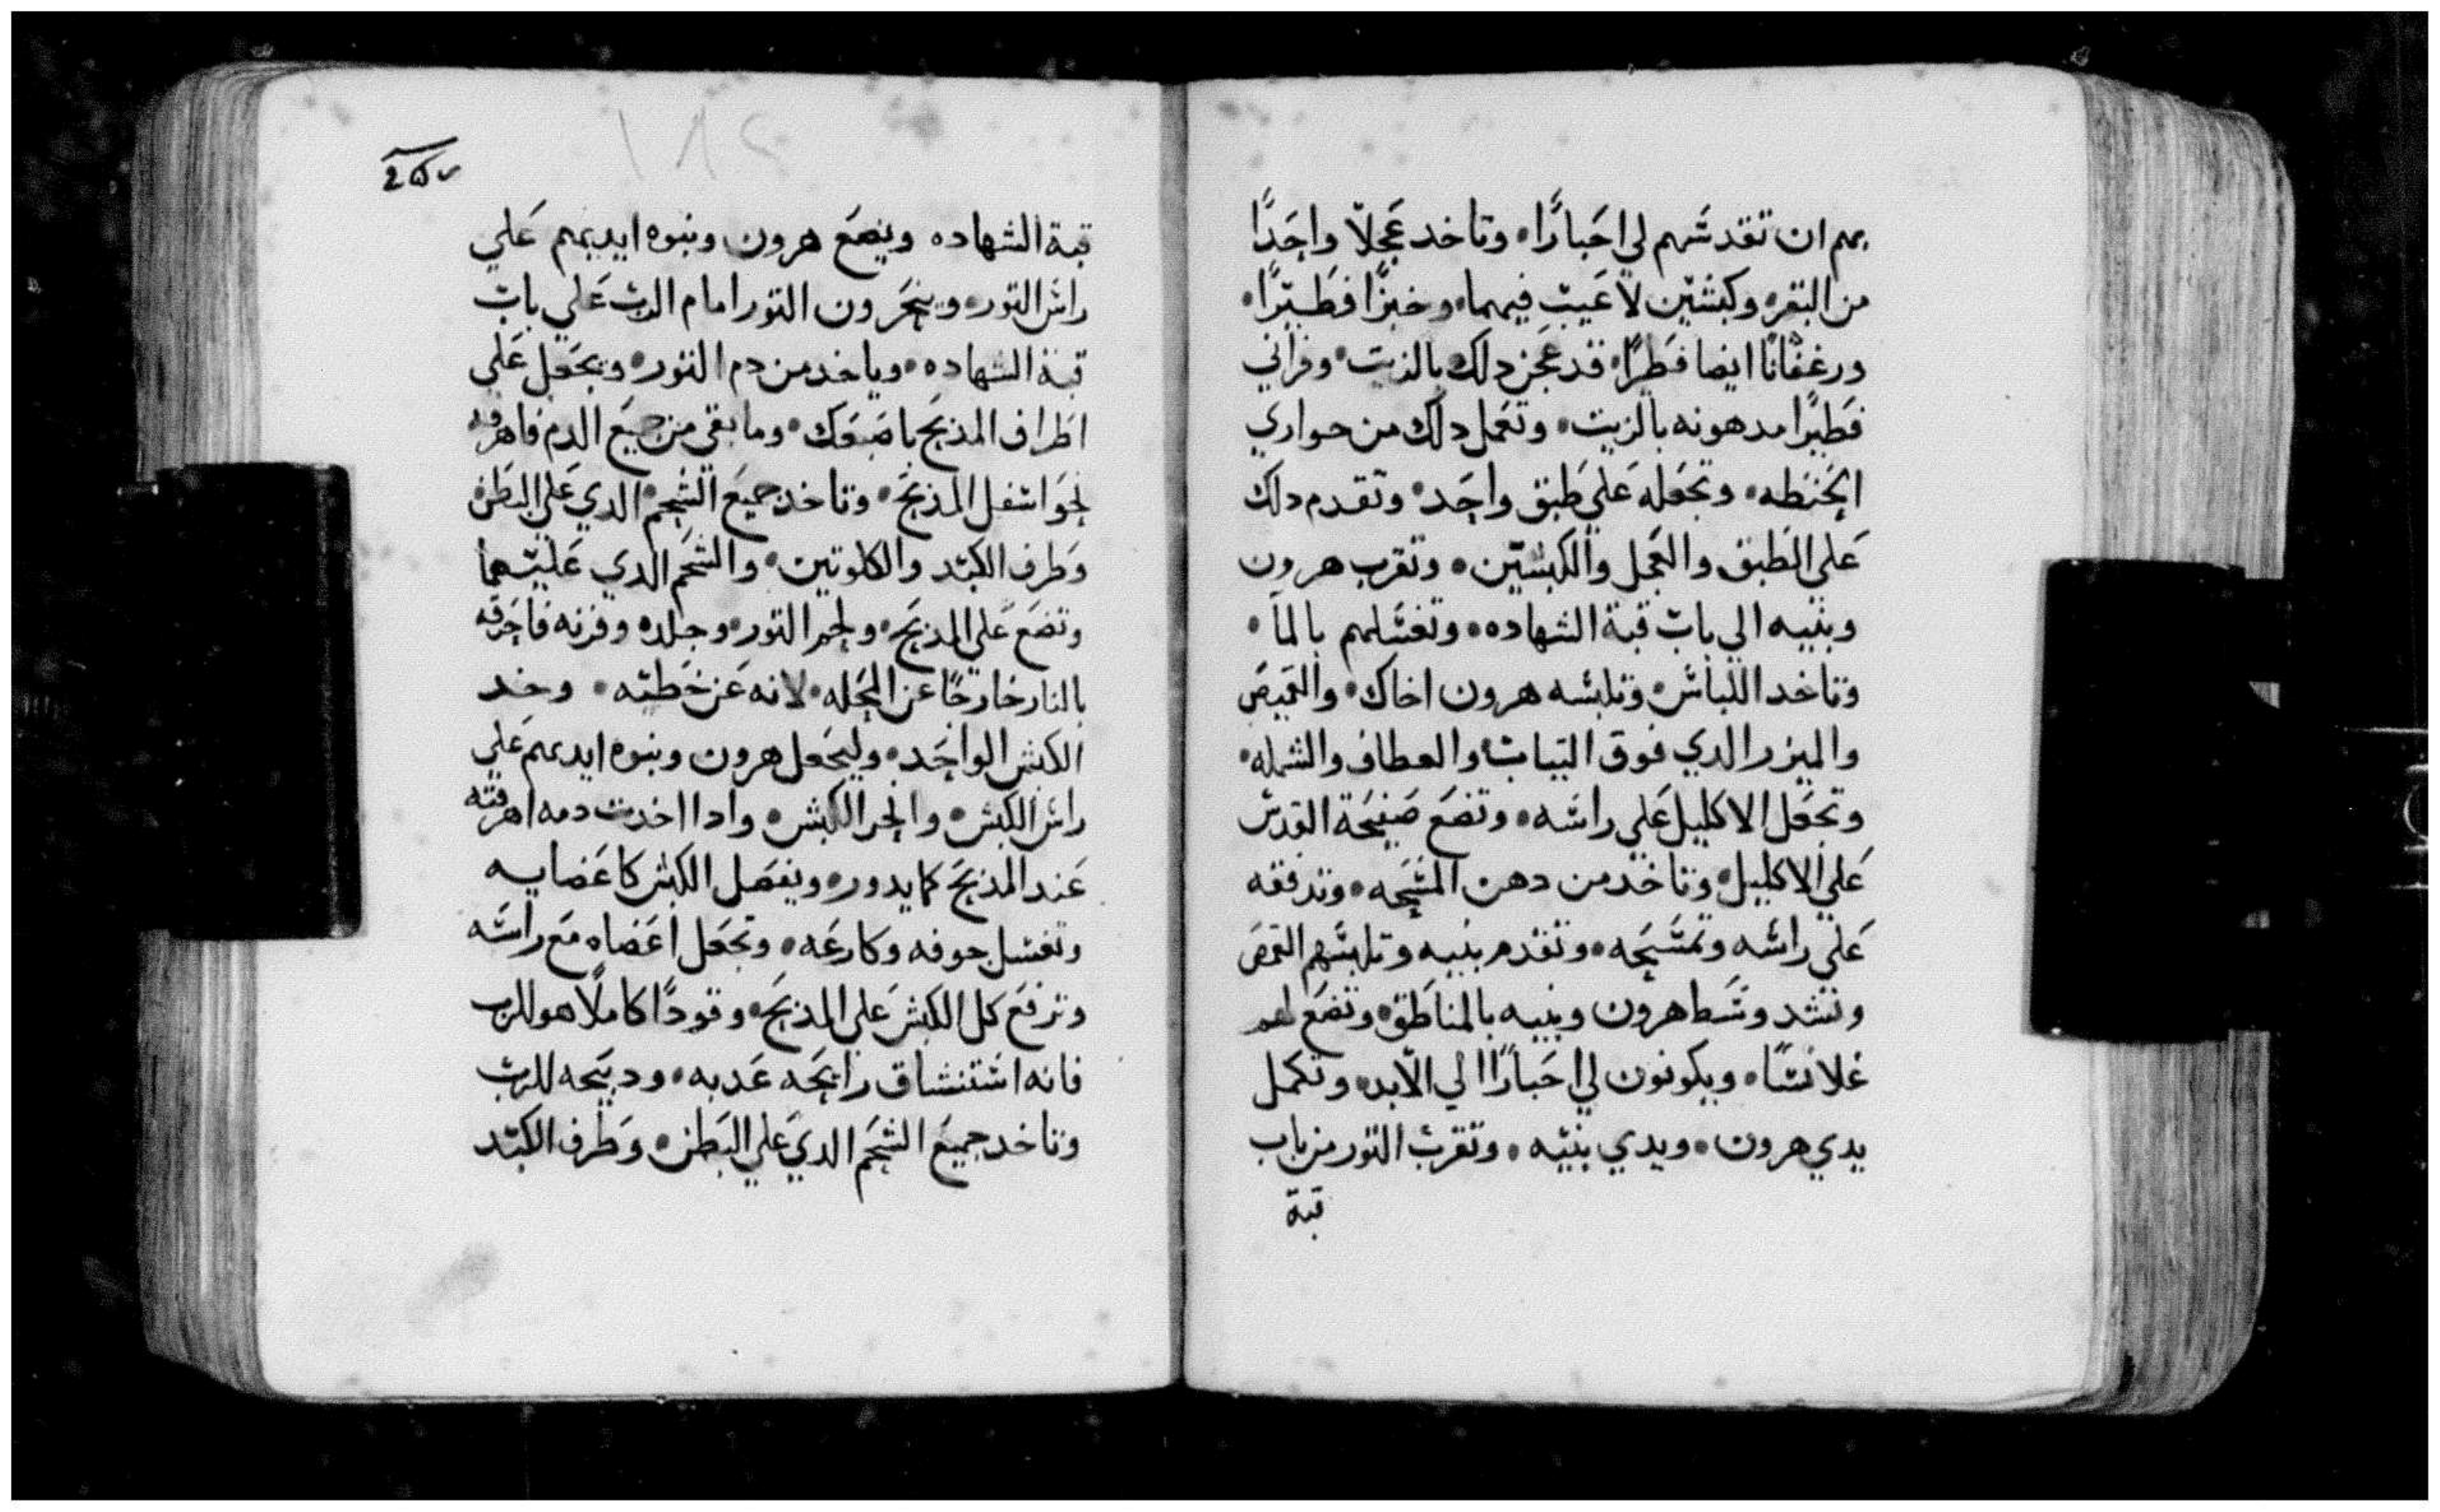 بهم ان تقدسهم لي احبارًا • وتاخد عجلًا واحدًا
من البقر • وكبشين لا عيب فيهما • وخبزًا فطيرًا •
ورغفانًا ايضا فطرًا • قد عجن دلك بالزيت • وفراني
فطيرًا مدهونه بالزيت • وتعمل دلك من حواري
الحنطه • وتجعله علي طبق واحد • وتقدم دلك
علي الطبق والعجل والكبشين • وتقرب هرون
وبنيه الي باب قبة الشهاده • وتغسلهم بالما •
وتاخد اللباس • وتلبسه هرون اخاك • والقميص
والميزر الدي فوق التياب والعطاف والشمله •
وتجعل الاكليل علي راسه • وتضع صفيحة القدس
علي الاكليل • وتاخد من دهن المسحه • وتدفقه
علي راسه وتمسحه • وتقدم بنيه وتلبسهم القمص
وتشد وسط هرون وبنيه بالمناطق • وتضع لهم
غلانسًا • ويكونون لي احبارًا الي الابد • وتكمل
يدي هرون • ويدي بنيه • وتقرب التور من باب
قبة
قبة الشهاده ويضع هرون وبنوه ايديهم علي
راس التور • وينحرون التور امام الرب علي باب
قبة الشهاده • وياخد من دم التور • ويجعل علي
اطراف المذبح باصبعك • وما بقي من جميع الدم فاهرقه
نحو اسفل المذبح • وتاخد جميع الشحم الدي علي البطن
وطرف الكبد والكلوتين • والشحم الدي عليهما
وتضع علي المذبح • ولحم التور • وجلده وفرثه فاحرقه
بالنار خارجًا عن المحله • لانه عن خطيه • وخد
الكبش الواحد • وليجعل هرون وبنوه ايديهم علي
راس الكبش • وانحر الكبش • وادا اخدت دمه اهرقته
عند المذبح كما يدور • ويفصل الكبش كاعضايه
وتغسل جوفه وكارعه • وتجعل اعضاه مع راسه
وترفع كل الكبش علي المذبح • وقودًا كاملًا هو للرب
فانه استنشاق رايحه عدبه • ودبيحه للرب
وتاخد جميع الشحم الدي علي البطن • وطرف الكبد